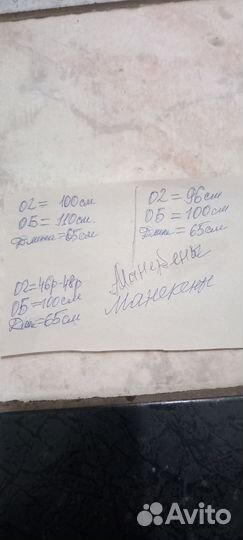 ОГ = 100см
ОБ = 110см.
Длина = 65см
ОГ = 96см
ОБ = 100см
Длина = 65см
ОГ = 46р-48р
ОБ = 100см
Дли = 65см
Манекены
Манекены
Avito